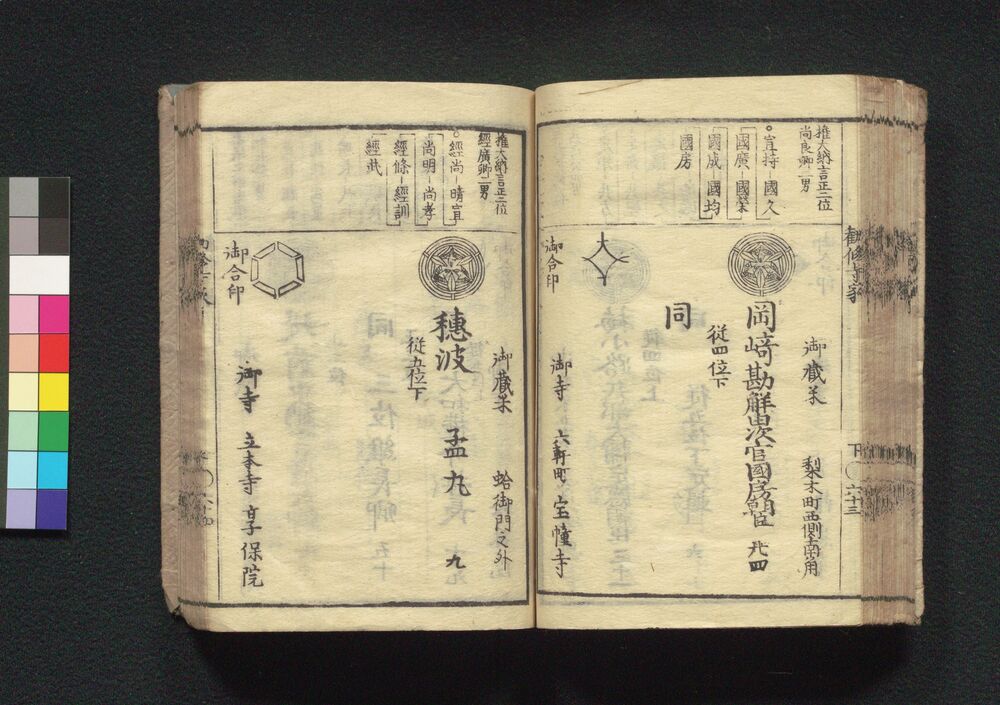 勧修寺家
下
六十三
推大納言正二位
尚良卿二男
宣持-國久
國廣-國榮
國成-國均
國房
御藏米
梨木町西側南角
岡﨑勘解由次官國房朝臣
廿四
従四位下
同
大
御合印
御寺
六軒町
宝幢寺
推大納言正二位
經廣卿二男
經尚-晴宣
尚明-尚孝
經條-經訓
經武
御藏米
蛤御門之外
穗波
孟九
九
従五位下
御合印
御寺
立本寺
保院